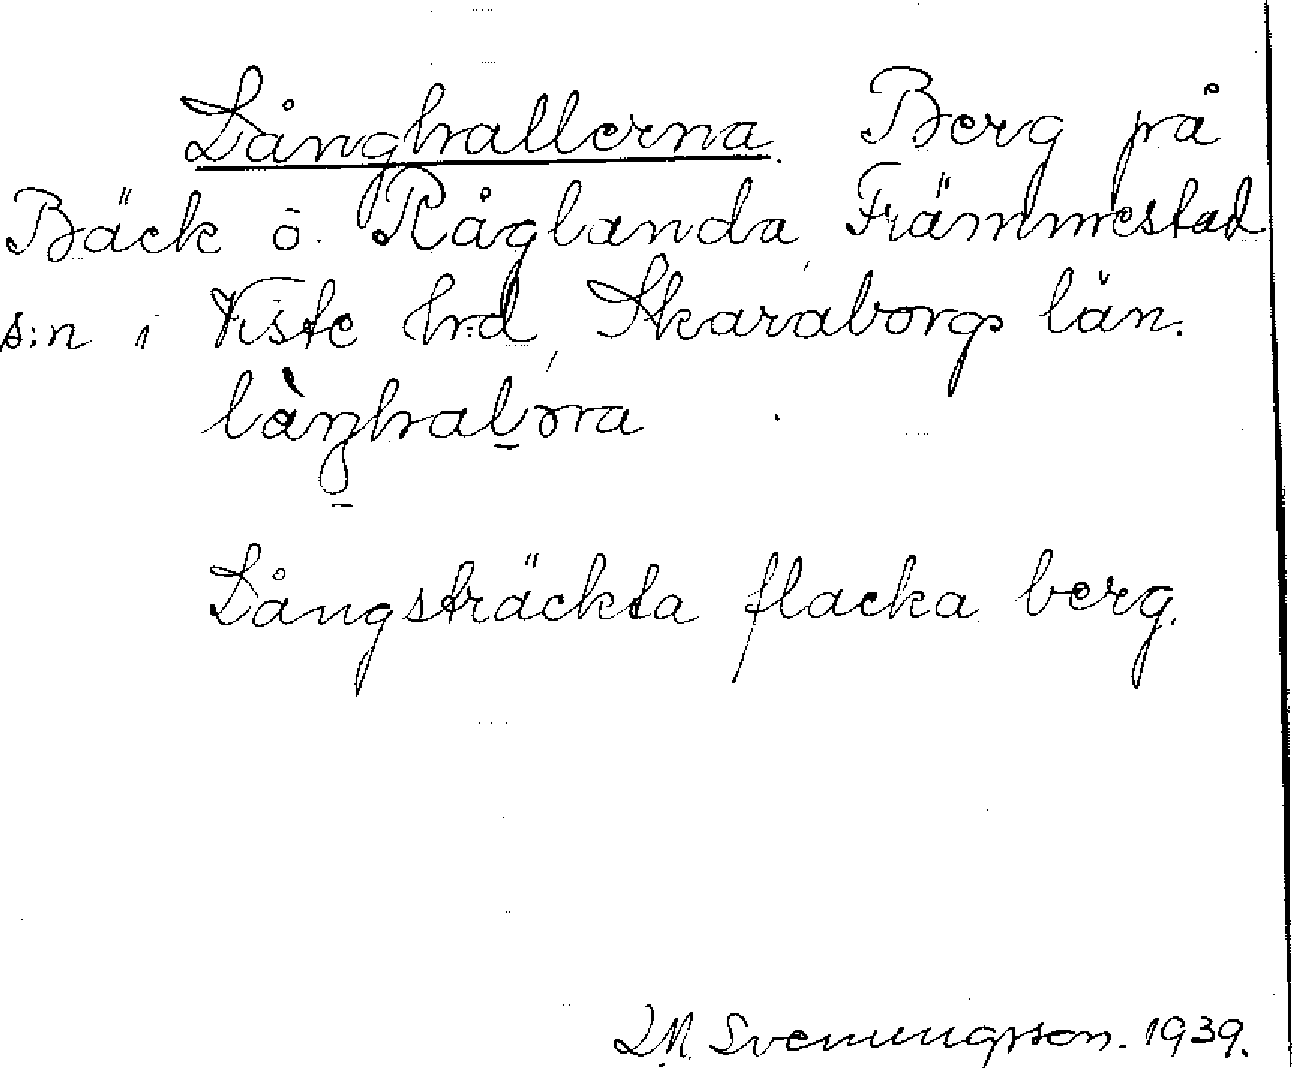 Långhallerna. Berg på
Bäck o. Råglanda, Främmestad
s:n i Viste hrd, Skaraborgs län.
Långsträckta flacka berg.
Svenungsson. 1939.